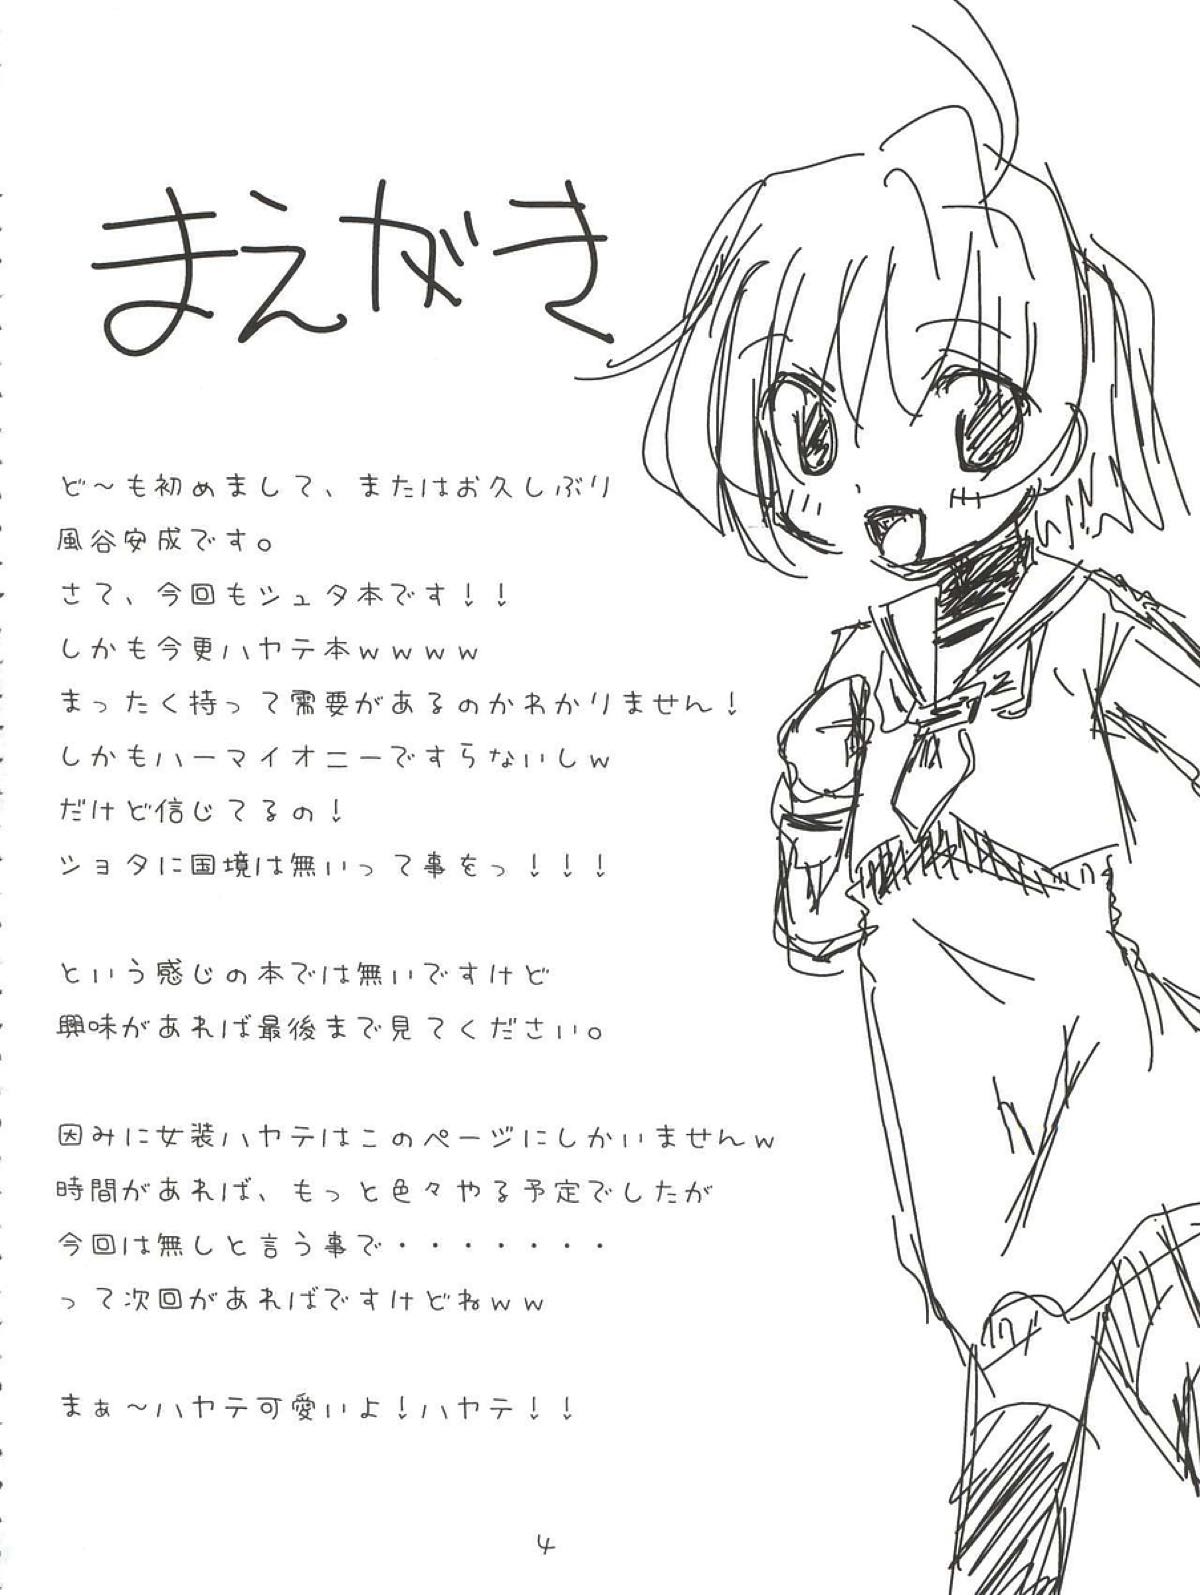 まえがき
ど～も初めまして、またはお久しぶり
風谷安成です。
さて、今回もシュタ本です！！
しかも今更ハヤテ本ｗｗｗｗ
まったく持って需要があるのかわかりません！
しかもハーマイオニーですらないしｗ
だけど信じてるの！
ショタに国境は無いって事をっ！！！
という感じの本では無いですけど
興味があれば最後まで見てください。
因みに女装ハヤテはこのページにしかいませんｗ
時間があれば、もっと色々やる予定でしたが
今回は無しと言う事で・・・・・・・
って次回があればですけどねｗｗ
まぁ～ハヤテ可愛いよ！ハヤテ！！
4